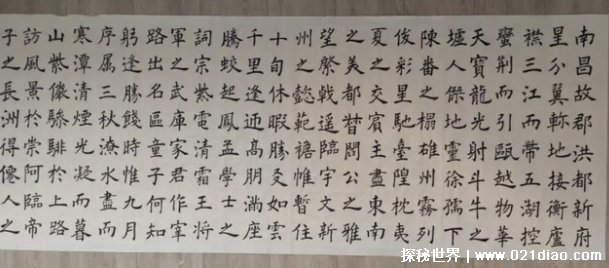 南昌故郡洪都新府
星分翼軫地接衡廬
襟三江而帶五湖控
蠻荊而引甌越物華
天寶龍光射斗牛之
墟人傑地靈徐孺下
陳蕃之榻雄州霧列
俊彩星馳臺隍枕夷
夏之交賓主盡東南
之美都督閻公之雅
望棨戟遙臨宇文新
州之懿範襜帷暫住
十旬休暇勝友如雲
千里逢迎高朋滿座
騰蛟起鳳孟學士之
詞宗紫電清霜王將
軍之武庫家君作宰
路出名區童子何知
躬逢勝餞時惟九月
序屬三秋潦水盡而
寒潭清煙光凝而暮
山紫儼驂騑於上路
訪風景於崇阿臨帝
子之長洲得僊人之
探秘世界|www.021diao.com